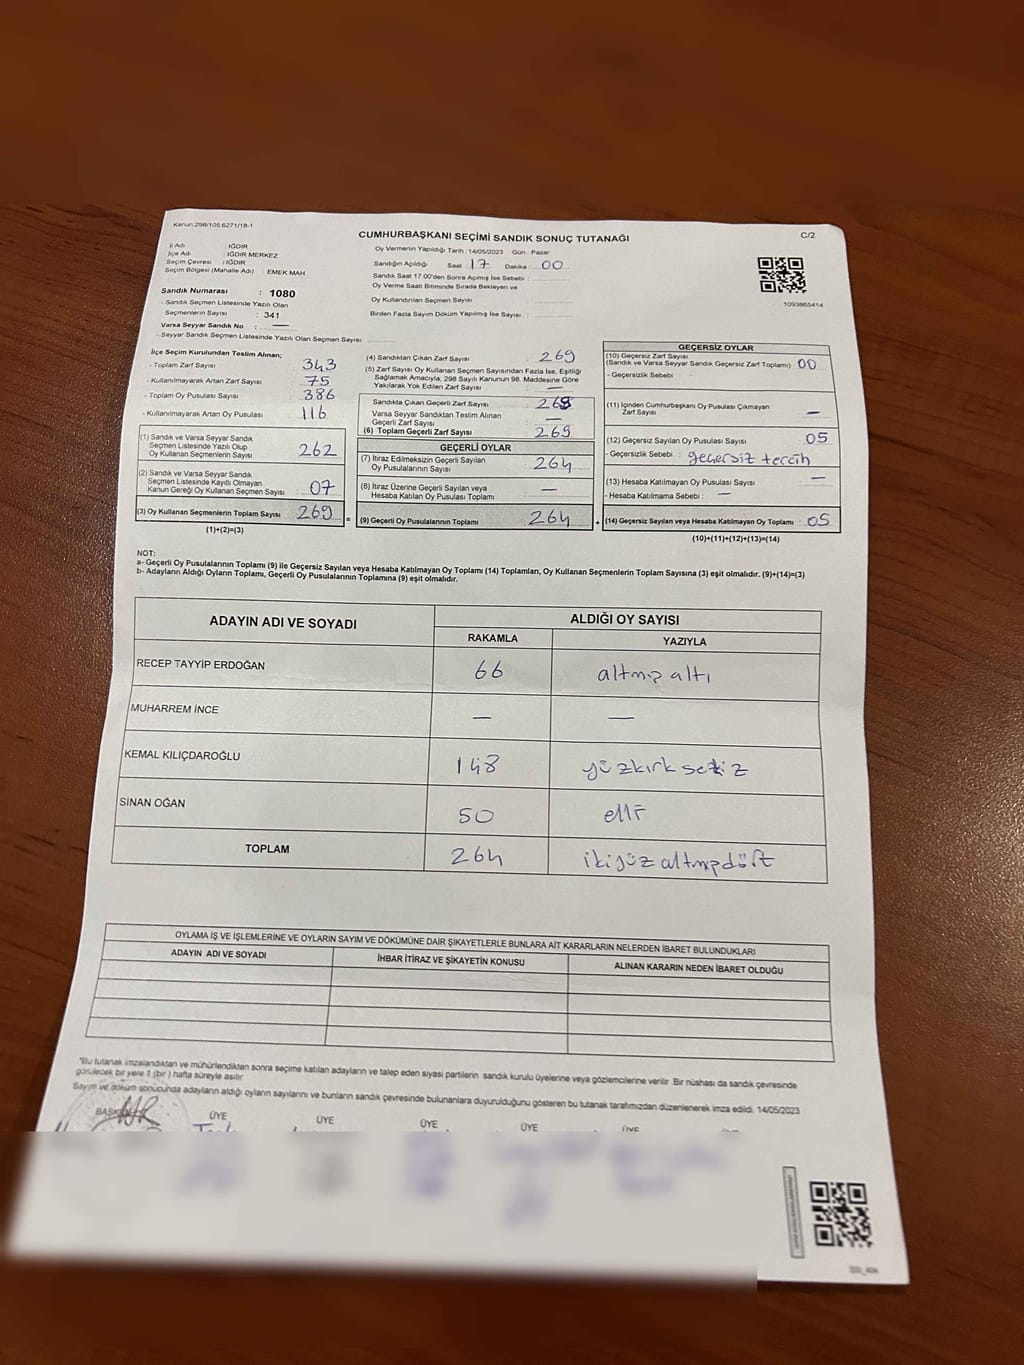 Kanun:298/105.6271/18-1
CUMHURBAŞKANI SEÇİMİ SANDIK SONUÇ TUTANAĞI
C/2
İl Adı : IĞDIR
İlçe Adı : IĞDIR MERKEZ
Seçim Çevresi : IĞDIR
Seçim Bölgesi (Mahalle Adı) : EMEK MAH.
Sandık Numarası : 1080
- Sandık Seçmen Listesinde Yazılı Olan
Seçmenlerin Sayısı : 341
Varsa Seyyar Sandık No : —
- Seyyar Sandık Seçmen Listesinde Yazılı Olan Seçmen Sayısı :
Oy Vermenin Yapıldığı Tarih : 14/05/2023 Gün : Pazar
Sandığın Açıldığı Saat : 17 Dakika : 00
Sandık Saat 17:00'den Sonra Açılmış İse Sebebi :
Oy Verme Saati Bitiminde Sırada Bekleyen ve
Oy Kullandırılan Seçmen Sayısı :
Birden Fazla Sayım Döküm Yapılmış İse Sayısı :
1093865414
İlçe Seçim Kurulundan Teslim Alınan;
- Toplam Zarf Sayısı : 343
- Kullanılmayarak Artan Zarf Sayısı : 75
- Toplam Oy Pusulası Sayısı : 386
- Kullanılmayarak Artan Oy Pusulası : 116
(1) Sandık ve Varsa Seyyar Sandık
Seçmen Listesinde Yazılı Olup
Oy Kullanan Seçmenlerin Sayısı : 262
(2) Sandık ve Varsa Seyyar Sandık
Seçmen Listesinde Kayıtlı Olmayan
Kanun Gereği Oy Kullanan Seçmen Sayısı : 07
(3) Oy Kullanan Seçmenlerin Toplam Sayısı : 269
(1)+(2)=(3)
(4) Sandıktan Çıkan Zarf Sayısı : 269
(5) Zarf Sayısı Oy Kullanan Seçmen Sayısından Fazla İse, Eşitliği
Sağlamak Amacıyla, 298 Sayılı Kanunun 98. Maddesine Göre
Yakılarak Yok Edilen Zarf Sayısı : —
Sandıkta Çıkan Geçerli Zarf Sayısı : 269
Varsa Seyyar Sandıktan Teslim Alınan
Geçerli Zarf Sayısı : —
(6) Toplam Geçerli Zarf Sayısı : 269
GEÇERLİ OYLAR
(7) İtiraz Edilmeksizin Geçerli Sayılan
Oy Pusulalarının Sayısı : 264
(8) İtiraz Üzerine Geçerli Sayılan veya
Hesaba Katılan Oy Pusulası Toplamı : —
= (9) Geçerli Oy Pusulalarının Toplamı : 264
GEÇERSİZ OYLAR
(10) Geçersiz Zarf Sayısı
(Sandık ve Varsa Seyyar Sandık Geçersiz Zarf Toplamı) : 00
- Geçersizlik Sebebi :
(11) İçinden Cumhurbaşkanı Oy Pusulası Çıkmayan
Zarf Sayısı : —
(12) Geçersiz Sayılan Oy Pusulası Sayısı : 05
- Geçersizlik Sebebi : geçersiz tercih
(13) Hesaba Katılmayan Oy Pusulası Sayısı : —
- Hesaba Katılmama Sebebi : —
+ (14) Geçersiz Sayılan veya Hesaba Katılmayan Oy Toplamı : 05
(10)+(11)+(12)+(13)=(14)
NOT:
a- Geçerli Oy Pusulalarının Toplamı (9) ile Geçersiz Sayılan veya Hesaba Katılmayan Oy Toplamı (14) Toplamları, Oy Kullanan Seçmenlerin Toplam Sayısına (3) eşit olmalıdır. (9)+(14)=(3)
b- Adayların Aldığı Oyların Toplamı, Geçerli Oy Pusulalarının Toplamına (9) eşit olmalıdır.
ADAYIN ADI VE SOYADI ALDIĞI OY SAYISI
RAKAMLA YAZIYLA
RECEP TAYYİP ERDOĞAN 66 altmış altı
MUHARREM İNCE — —
KEMAL KILIÇDAROĞLU 148 yüzkırk sekiz
SİNAN OĞAN 50 elli
TOPLAM 264 ikiyüz altmışdört
OYLAMA İŞ VE İŞLEMLERİNE VE OYLARIN SAYIM VE DÖKÜMÜNE DAİR ŞİKAYETLERLE BUNLARA AİT KARARLARIN NELERDEN İBARET BULUNDUKLARI
ADAYIN ADI VE SOYADI İHBAR İTİRAZ VE ŞİKAYETİN KONUSU ALINAN KARARIN NEDEN İBARET OLDUĞU
"Bu tutanak imzalandıktan ve mühürlendikten sonra seçime katılan adayların ve talep eden siyasi partilerin sandık kurulu üyelerine veya gözlemcilerine verilir. Bir nüshası da sandık çevresinde
görülecek bir yere 1 (bir ) hafta süreyle asılır.
Sayım ve döküm sonucunda adayların aldığı oyların sayılarını ve bunların sandık çevresinde bulunanlara duyurulduğunu gösteren bu tutanak tarafımızdan düzenlenerek imza edildi. 14/05/2023
BAŞKAN ÜYE ÜYE ÜYE ÜYE ÜYE